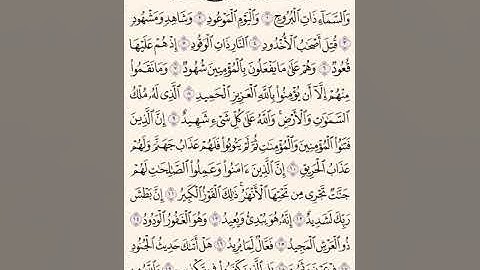 وَٱلسَّمَآءِ ذَاتِ ٱلْبُرُوجِ ١ وَٱلْيَوْمِ ٱلْمَوْعُودِ ٢ وَشَاهِدٍ وَمَشْهُودٍ
٣ قُتِلَ أَصْحَٰبُ ٱلْأُخْدُودِ ٤ ٱلنَّارِ ذَاتِ ٱلْوَقُودِ ٥ إِذْ هُمْ عَلَيْهَا
قُعُودٌ ٦ وَهُمْ عَلَىٰ مَا يَفْعَلُونَ بِٱلْمُؤْمِنِينَ شُهُودٌ ٧ وَمَا نَقَمُوا۟
مِنْهُمْ إِلَّآ أَن يُؤْمِنُوا۟ بِٱللَّهِ ٱلْعَزِيزِ ٱلْحَمِيدِ ٨ ٱلَّذِى لَهُۥ مُلْكُ
ٱلسَّمَٰوَٰتِ وَٱلْأَرْضِ ۚ وَٱللَّهُ عَلَىٰ كُلِّ شَىْءٍ شَهِيدٌ ٩ إِنَّ ٱلَّذِينَ
فَتَنُوا۟ ٱلْمُؤْمِنِينَ وَٱلْمُؤْمِنَٰتِ ثُمَّ لَمْ يَتُوبُوا۟ فَلَهُمْ عَذَابُ جَهَنَّمَ وَلَهُمْ
عَذَابُ ٱلْحَرِيقِ ١٠ إِنَّ ٱلَّذِينَ ءَامَنُوا۟ وَعَمِلُوا۟ ٱلصَّٰلِحَٰتِ لَهُمْ
جَنَّٰتٌ تَجْرِى مِن تَحْتِهَا ٱلْأَنْهَٰرُ ۚ ذَٰلِكَ ٱلْفَوْزُ ٱلْكَبِيرُ ١١ إِنَّ بَطْشَ
رَبِّكَ لَشَدِيدٌ ١٢ إِنَّهُۥ هُوَ يُبْدِئُ وَيُعِيدُ ١٣ وَهُوَ ٱلْغَفُورُ ٱلْوَدُودُ ١٤
ذُو ٱلْعَرْشِ ٱلْمَجِيدُ ١٥ فَعَّالٌ لِّمَا يُرِيدُ ١٦ هَلْ أَتَىٰكَ حَدِيثُ ٱلْجُنُودِ